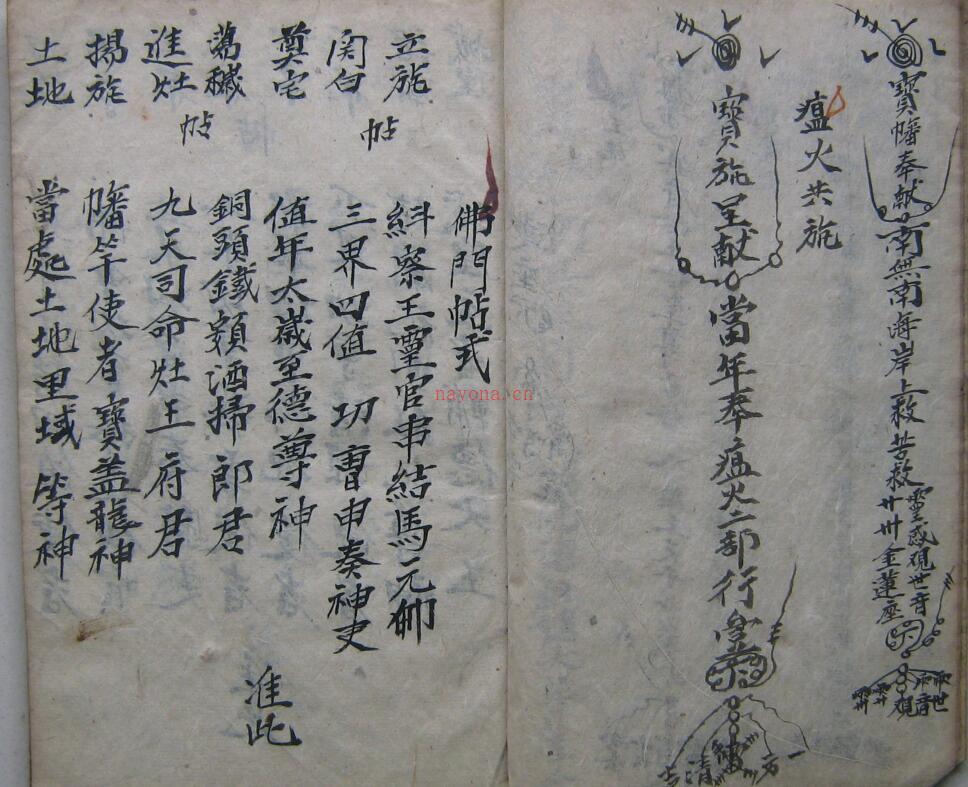 寶幡奉献南無南海岸上救苦救
靈感觀世音
金蓮座
瘟火共旎
寶旎呈献當年奉瘟火二部行
佛門帖式
立旎 糾察王靈官串結馬元帥
関白 三界四值功曹申奏神吏
帖
奠宅 值年太歲至德尊神
蕩穢 銅頭鐵額洒掃郎君
進灶 九天司命灶王府君
帖
揚旎 幡竿使者寶盖龍神
土地 當處土地里域等神
准此
nayona.cn